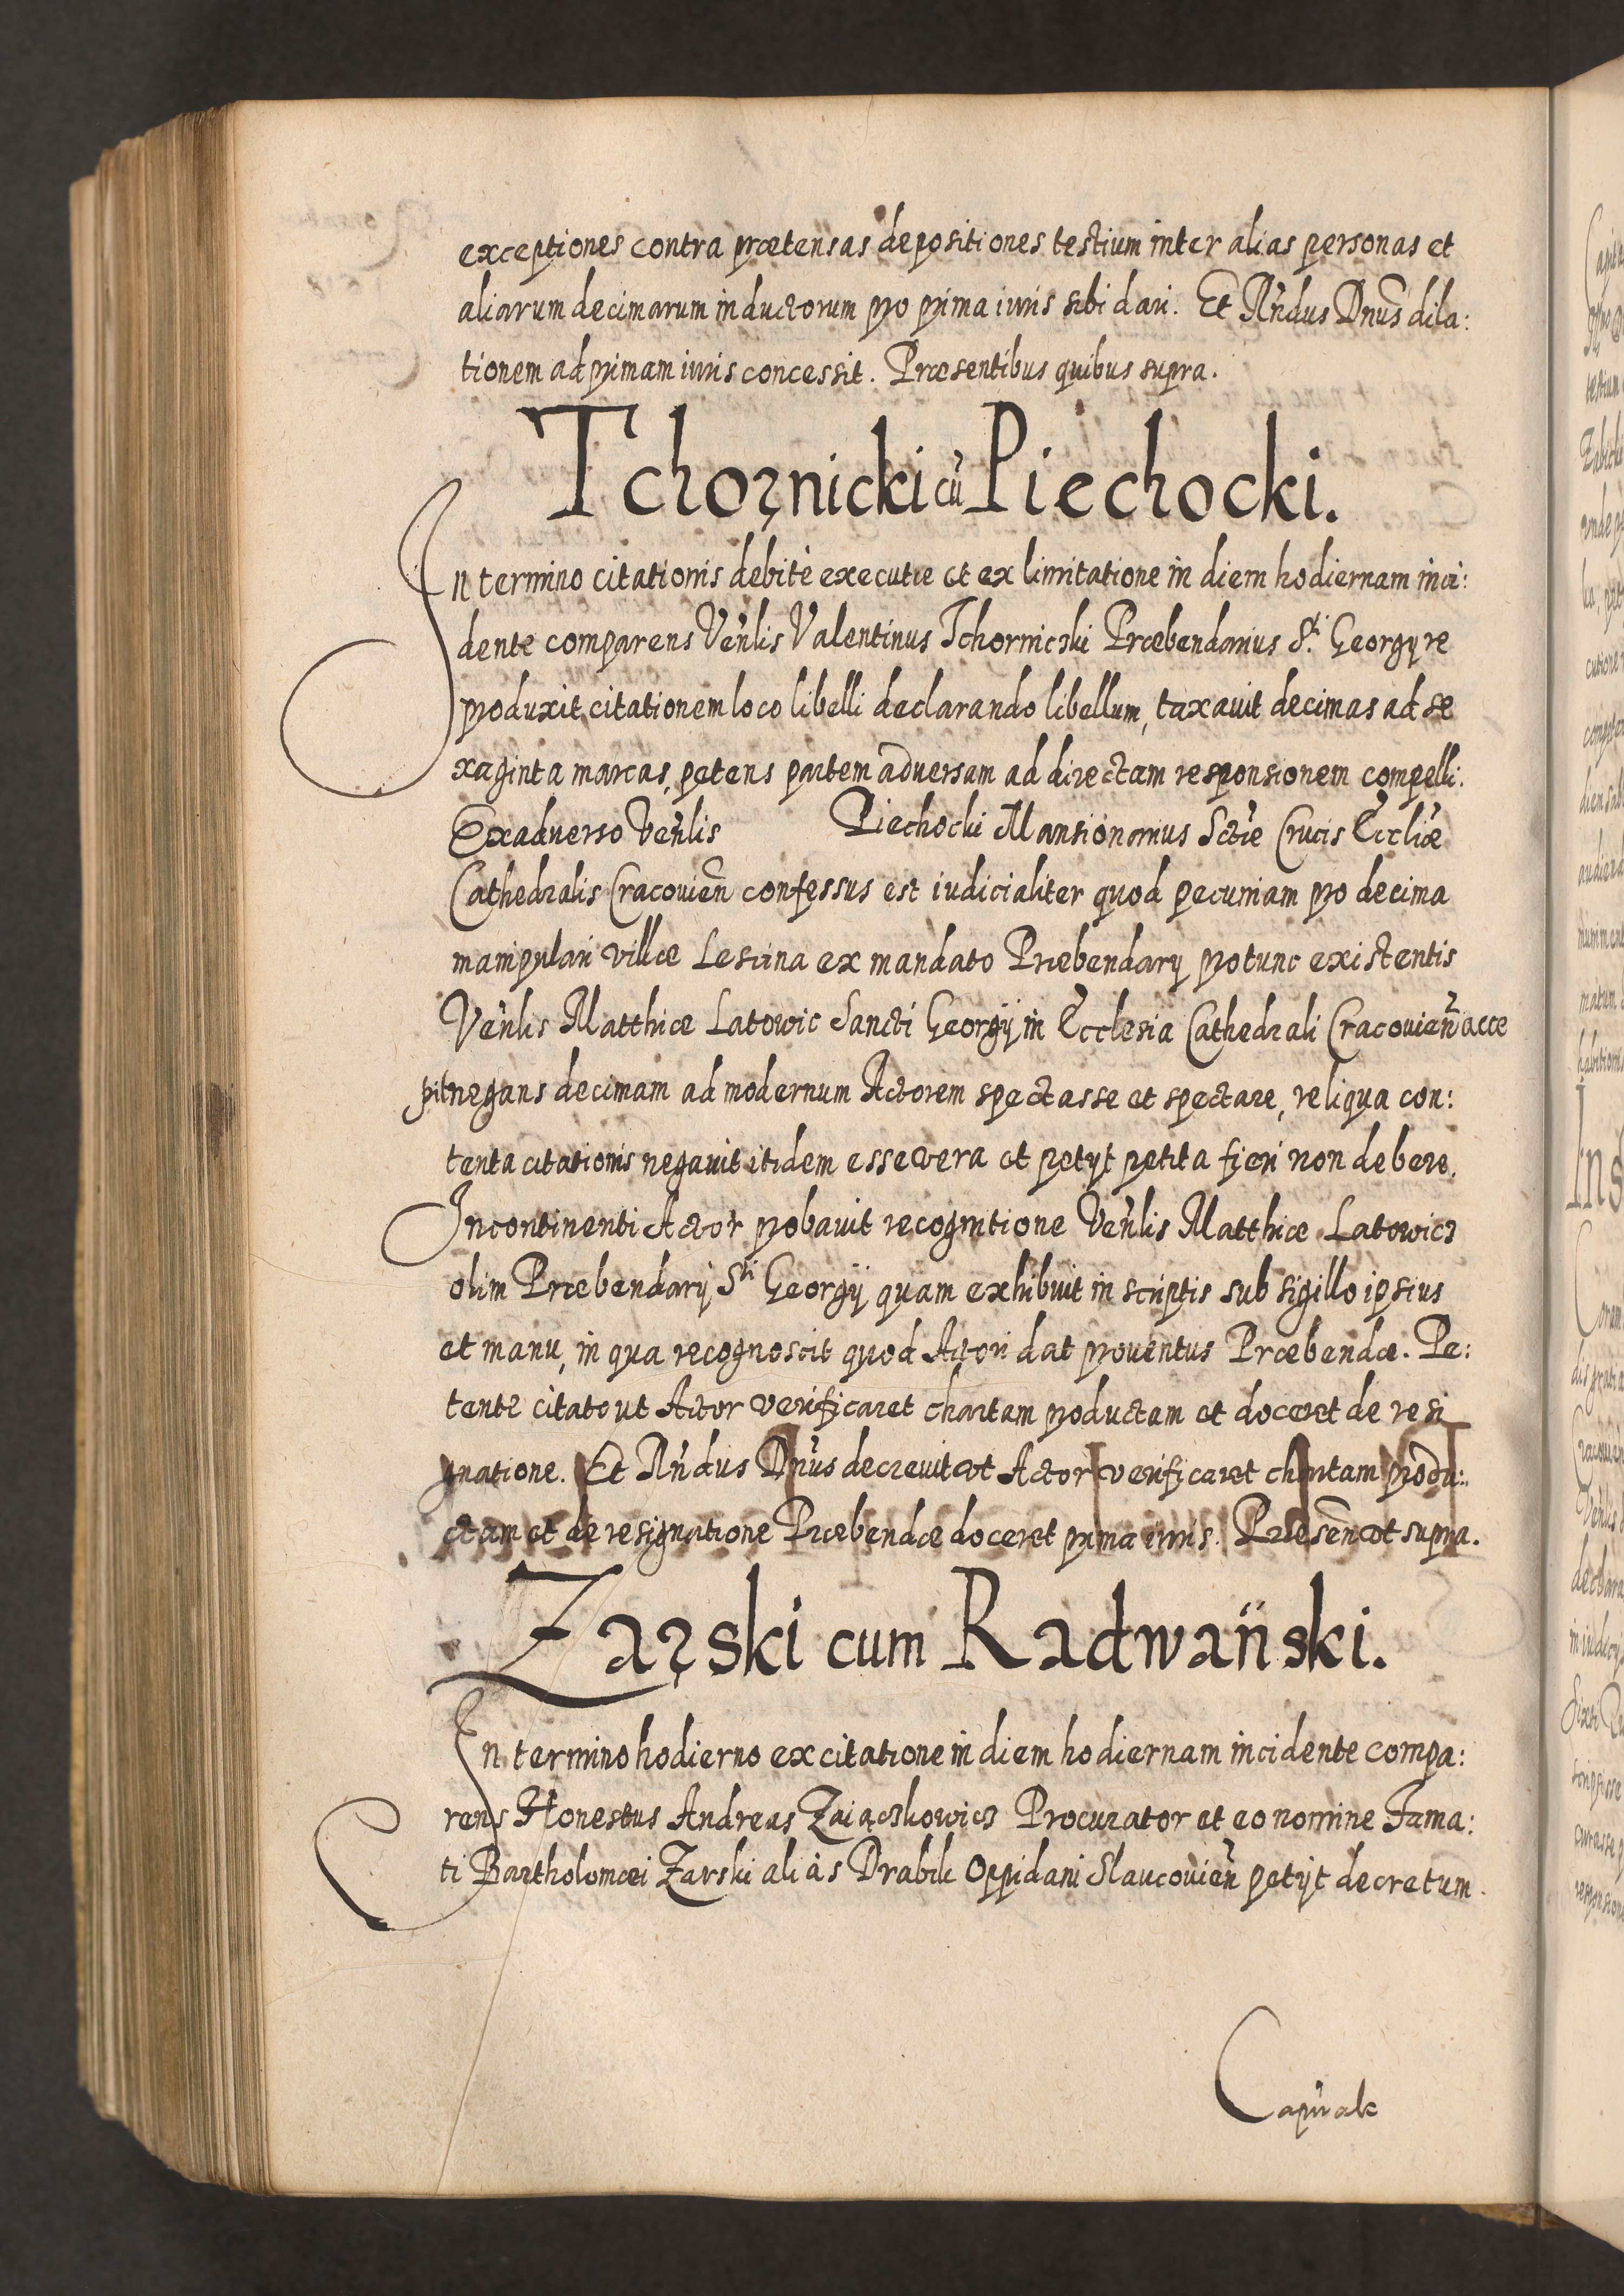 exceptiones contra prætensas depositiones testium inter alias personas et
aliarum decimarum inductorum pro prima iuris sibi dari. Et Rñdus Dnūs dila:
tionem ad primam iuris concessit. Præsentibus quibus supra.
Tchorznicki cū Piechocki.
In termino citationis debitè executæ et ex limitatione in diem hodiernam inci:
dente comparens Veñlis Valentinus Tchorznicski Præbendarius Sti Georgy re
produxit citationem loco libelli declarando libellum, taxauit decimas ad se
xaginta marcas, petens partem aduersam ad directam responsionem compelli.
Ex aduerso Veñlis Piechocki Mansionarius Sctæ Crucis Eccliæ
Cathedralis Cracouieñ confessus est iudicialiter quod pecuniam pro decima
manipulari villæ Lescina ex mandato Præbendary pro tunc existentis
Veñlis Matthiæ Latowic Sancti Georgÿ in Ecclesia Cathedrali Cracouieñ acce
pit negans decimam ad modernum Actorem spectasse et spectare, reliqua con:
tenta citationis negauit itidem esse vera et petyt petita fieri non debere.
Incontinenti Actor probauit recognitione Veñlis Matthiæ Latowicz
olim Præbendarÿ Sti Georgÿ quam exhibuit in scriptis sub sigillo ipsius
et manu, in qua recognoscit quod Actori dat prouentus Præbendæ. Pe:
tente citato ut Actor verificaret chartam productam et doceret de resi
gnatione. Et Rñdus Dñus decreuit ut Actor verificaret chartam produ:
ctam et de resignatione Præbendæ doceret prima iuris. Præseñ ut supra.
Zarski cum Radwański.
In termino hodierno ex citatione in diem hodiernam incidente compa:
rens Honestus Andreas Zaiączkowicz Procurator et eo nomine Fama:
ti Bartholomæi Zarski aliàs Drabik Oppidani Slaucouieñ petÿt decretum